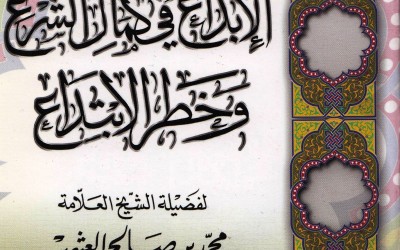 الإبداع في كمال الشرع
وخطر الابتداع
لفضيلة الشيخ العلامة
محمد بن صالح العثيمين